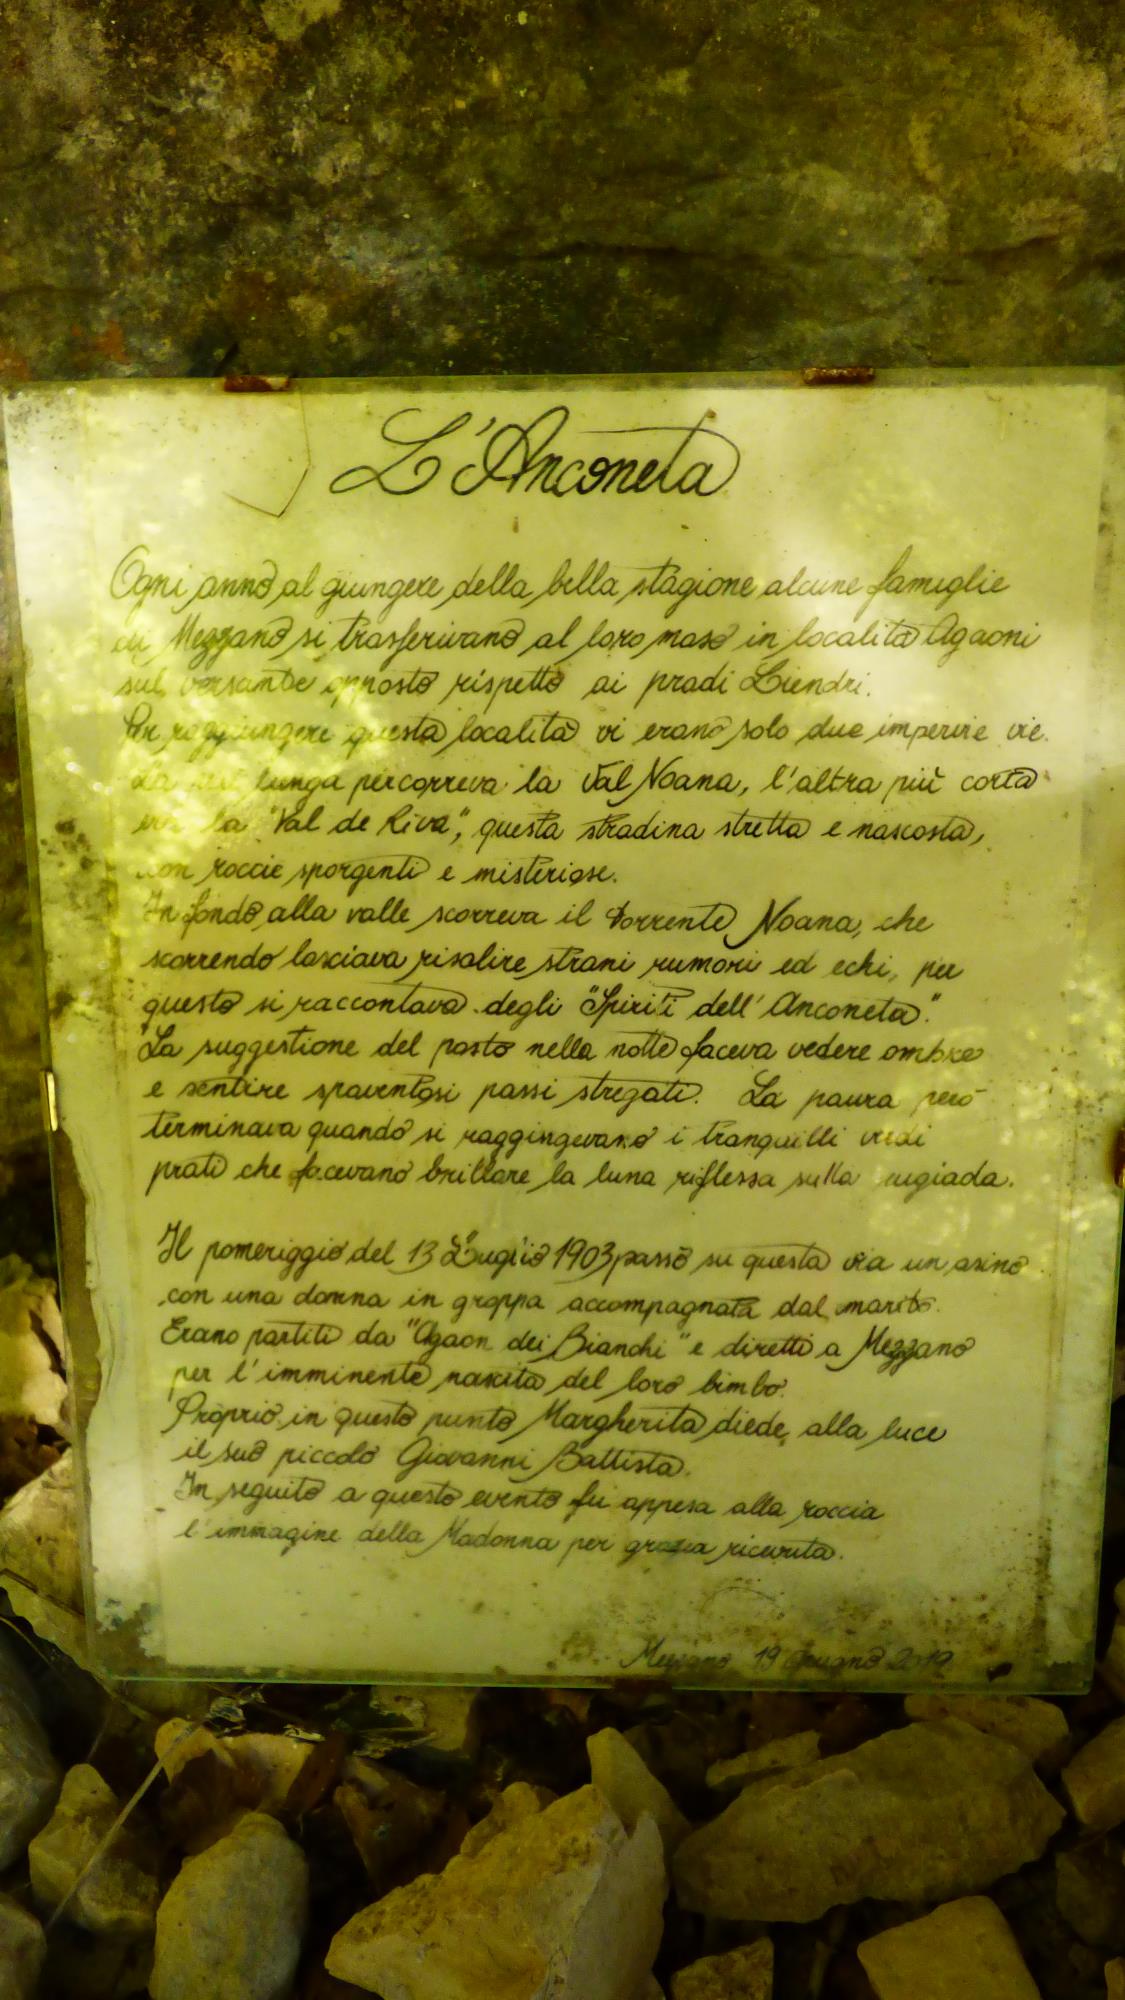 L'Anconeta
Ogni anno al giungere della bella stagione alcune famiglie
di Mezzano si trasferivano al loro maso in località Agaoni
sul versante opposto rispetto ai pradi Liendri.
Per raggiungere questa località vi erano solo due impervie vie.
La più lunga percorreva la Val Noana, l'altra più corta
era la "Val de Riva", questa stradina stretta e nascosta,
con roccie sporgenti e misteriose.
In fondo alla valle scorreva il Torrente Noana, che
scorrendo lasciava risalire strani rumori ed echi, per
questo si raccontava degli "Spiriti dell'Anconeta".
La suggestione del posto nella notte faceva vedere ombre
e sentire spaventosi passi stregati. La paura però
terminava quando si raggingevano i tranquilli verdi
prati che facevano brillare la luna riflessa sulla rugiada.
Il pomeriggio del 13 Luglio 1903 passò su questa via un asino
con una donna in groppa accompagnata dal marito.
Erano partiti da "Agaon dei Bianchi" e diretti a Mezzano
per l'imminente nascita del loro bimbo.
Proprio in questo punto Margherita diede alla luce
il suo piccolo Giovanni Battista.
In seguito a questo evento fu appesa alla roccia
l'immagine della Madonna per grazia ricevuta.
Mezzano 19 Giugno